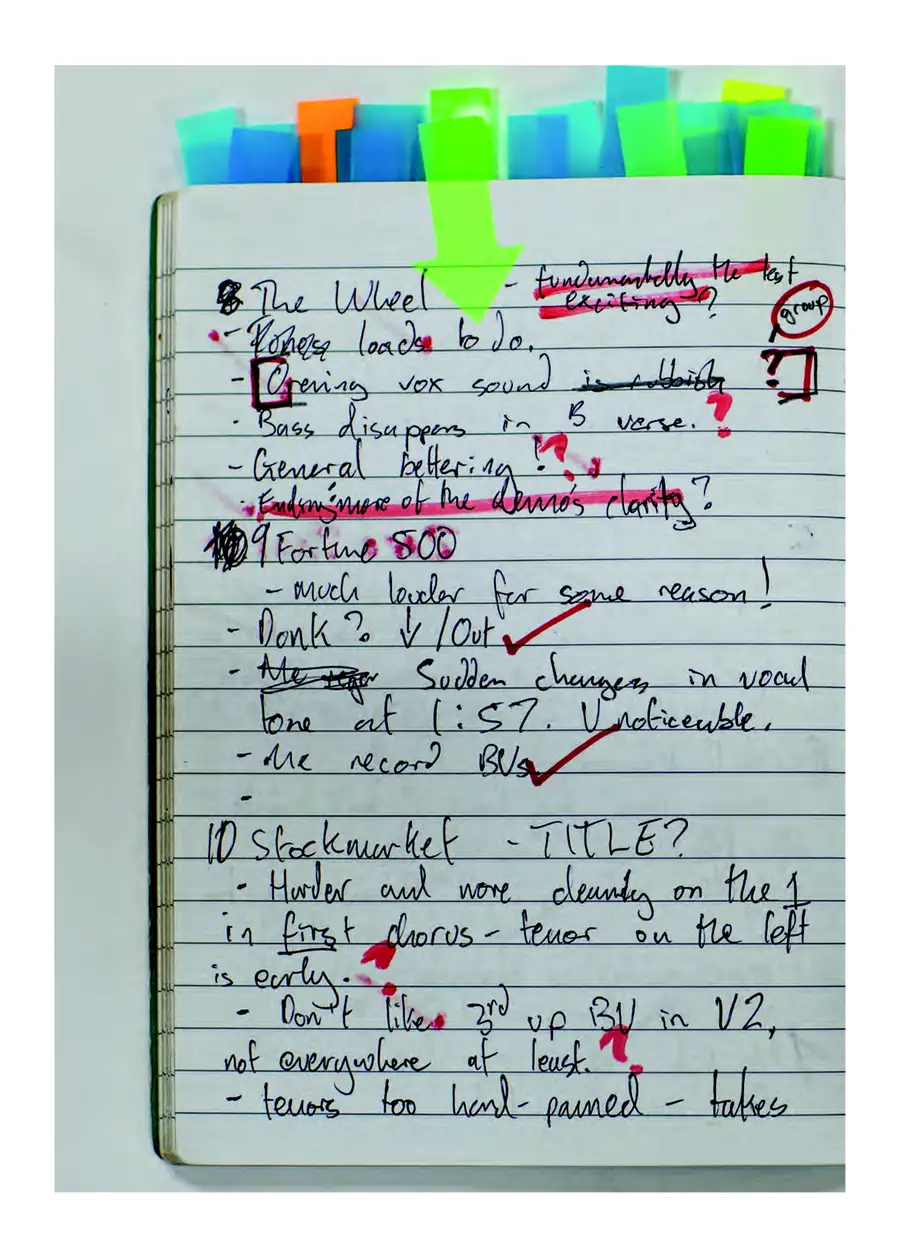 8 The Wheel - fundamentally the least
exciting?
group
- loads to do.
- Opening vox sound is rubbish ?
- Bass disappears in B verse. ?
- General bettering! ?
- Ending more of the demo's clarity?
9 Fortune 500
- Much louder for some reason!
- Donk? ↓ /Out ✓
- Me Sudden changes in vocal
tone at 1:57. V noticeable.
- Me record BVs ✓
-
10 Stockmarket - TITLE?
- Harder and more cleanly on the 1
in first chorus - tenor on the left
is early. ?
- Don't like 3rd up BV in V2,
not everywhere at least. ?
- tenors too hard-panned - takes